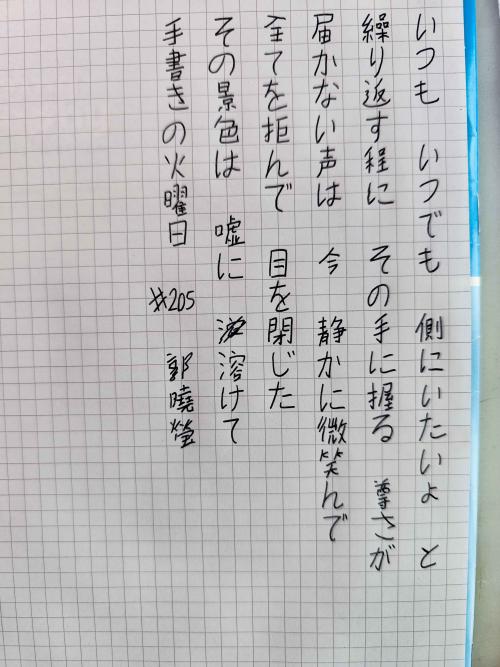 いつも　いつでも　側にいたいよ　と
繰り返す程に　その手に握る　尊さが
届かない声は　今　静かに微笑んで
全てを拒んで　目を閉じた
その景色は　嘘に　溶けて
手書きの火曜日　#205　郭曉瑩